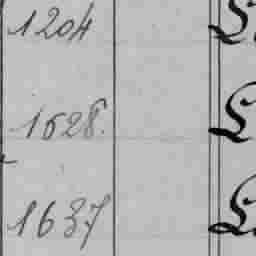 1204
1628.
1637